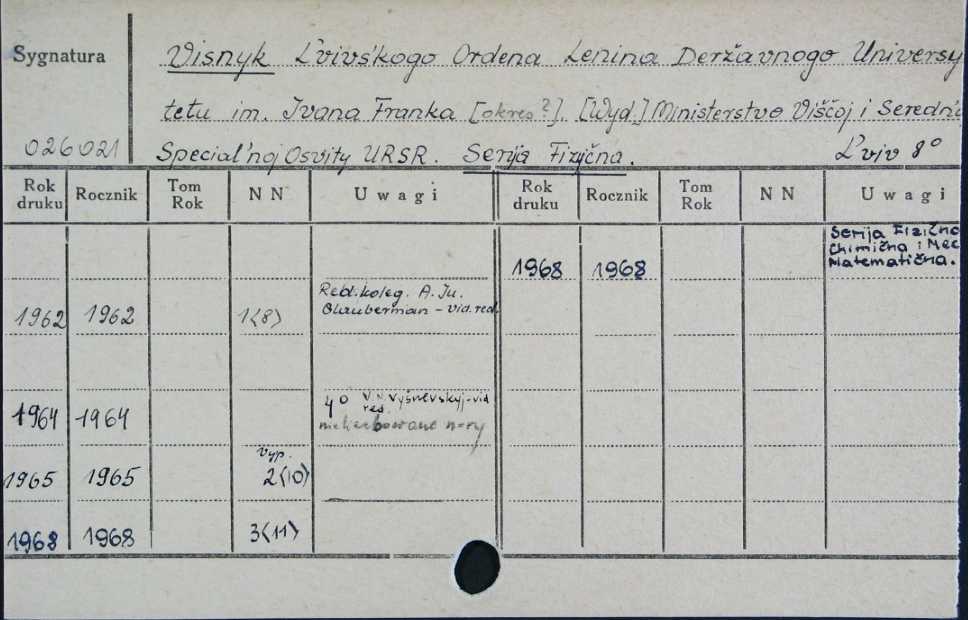 Sygnatura
Visnyk L'vivs'kogo Ordena Lenina Deržavnogo Universy
tetu im. Ivana Franka [okres?]. [Wyd.] Ministerstvo Viščoj i Seredn'o
026021 Special'noj Osvity URSR. Serija Fizyčna. L'viv 8°
Rok druku Rocznik Tom Rok N N Uwagi Rok druku Rocznik Tom Rok N N Uwagi
1968 1968 Serija Fizično
Chimična i Mec
Matematična.
1962 1962 1(8) Red. koleg. A. Ju.
Glauberman - vid. red.
1964 1964 4° V.N. Vyšnevskyj - vid
res.
nieliczbowane n-ry
1965 1965 vyp. 2(10)
1968 1968 3(11)